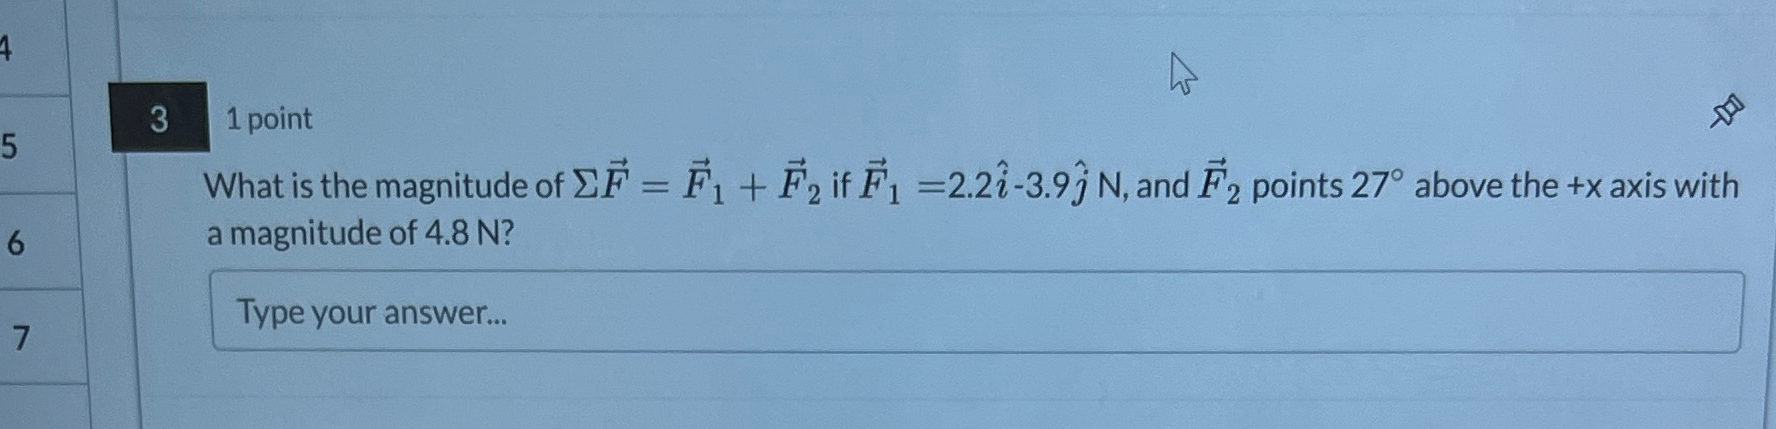 4
5
6
7
3 1 point
What is the magnitude of $\Sigma\vec{F} = \vec{F}_1 + \vec{F}_2$ if $\vec{F}_1$ =2.2$\hat{i}$-3.9$\hat{j}$ N, and $\vec{F}_2$ points 27° above the +x axis with
a magnitude of 4.8 N?
Type your answer...